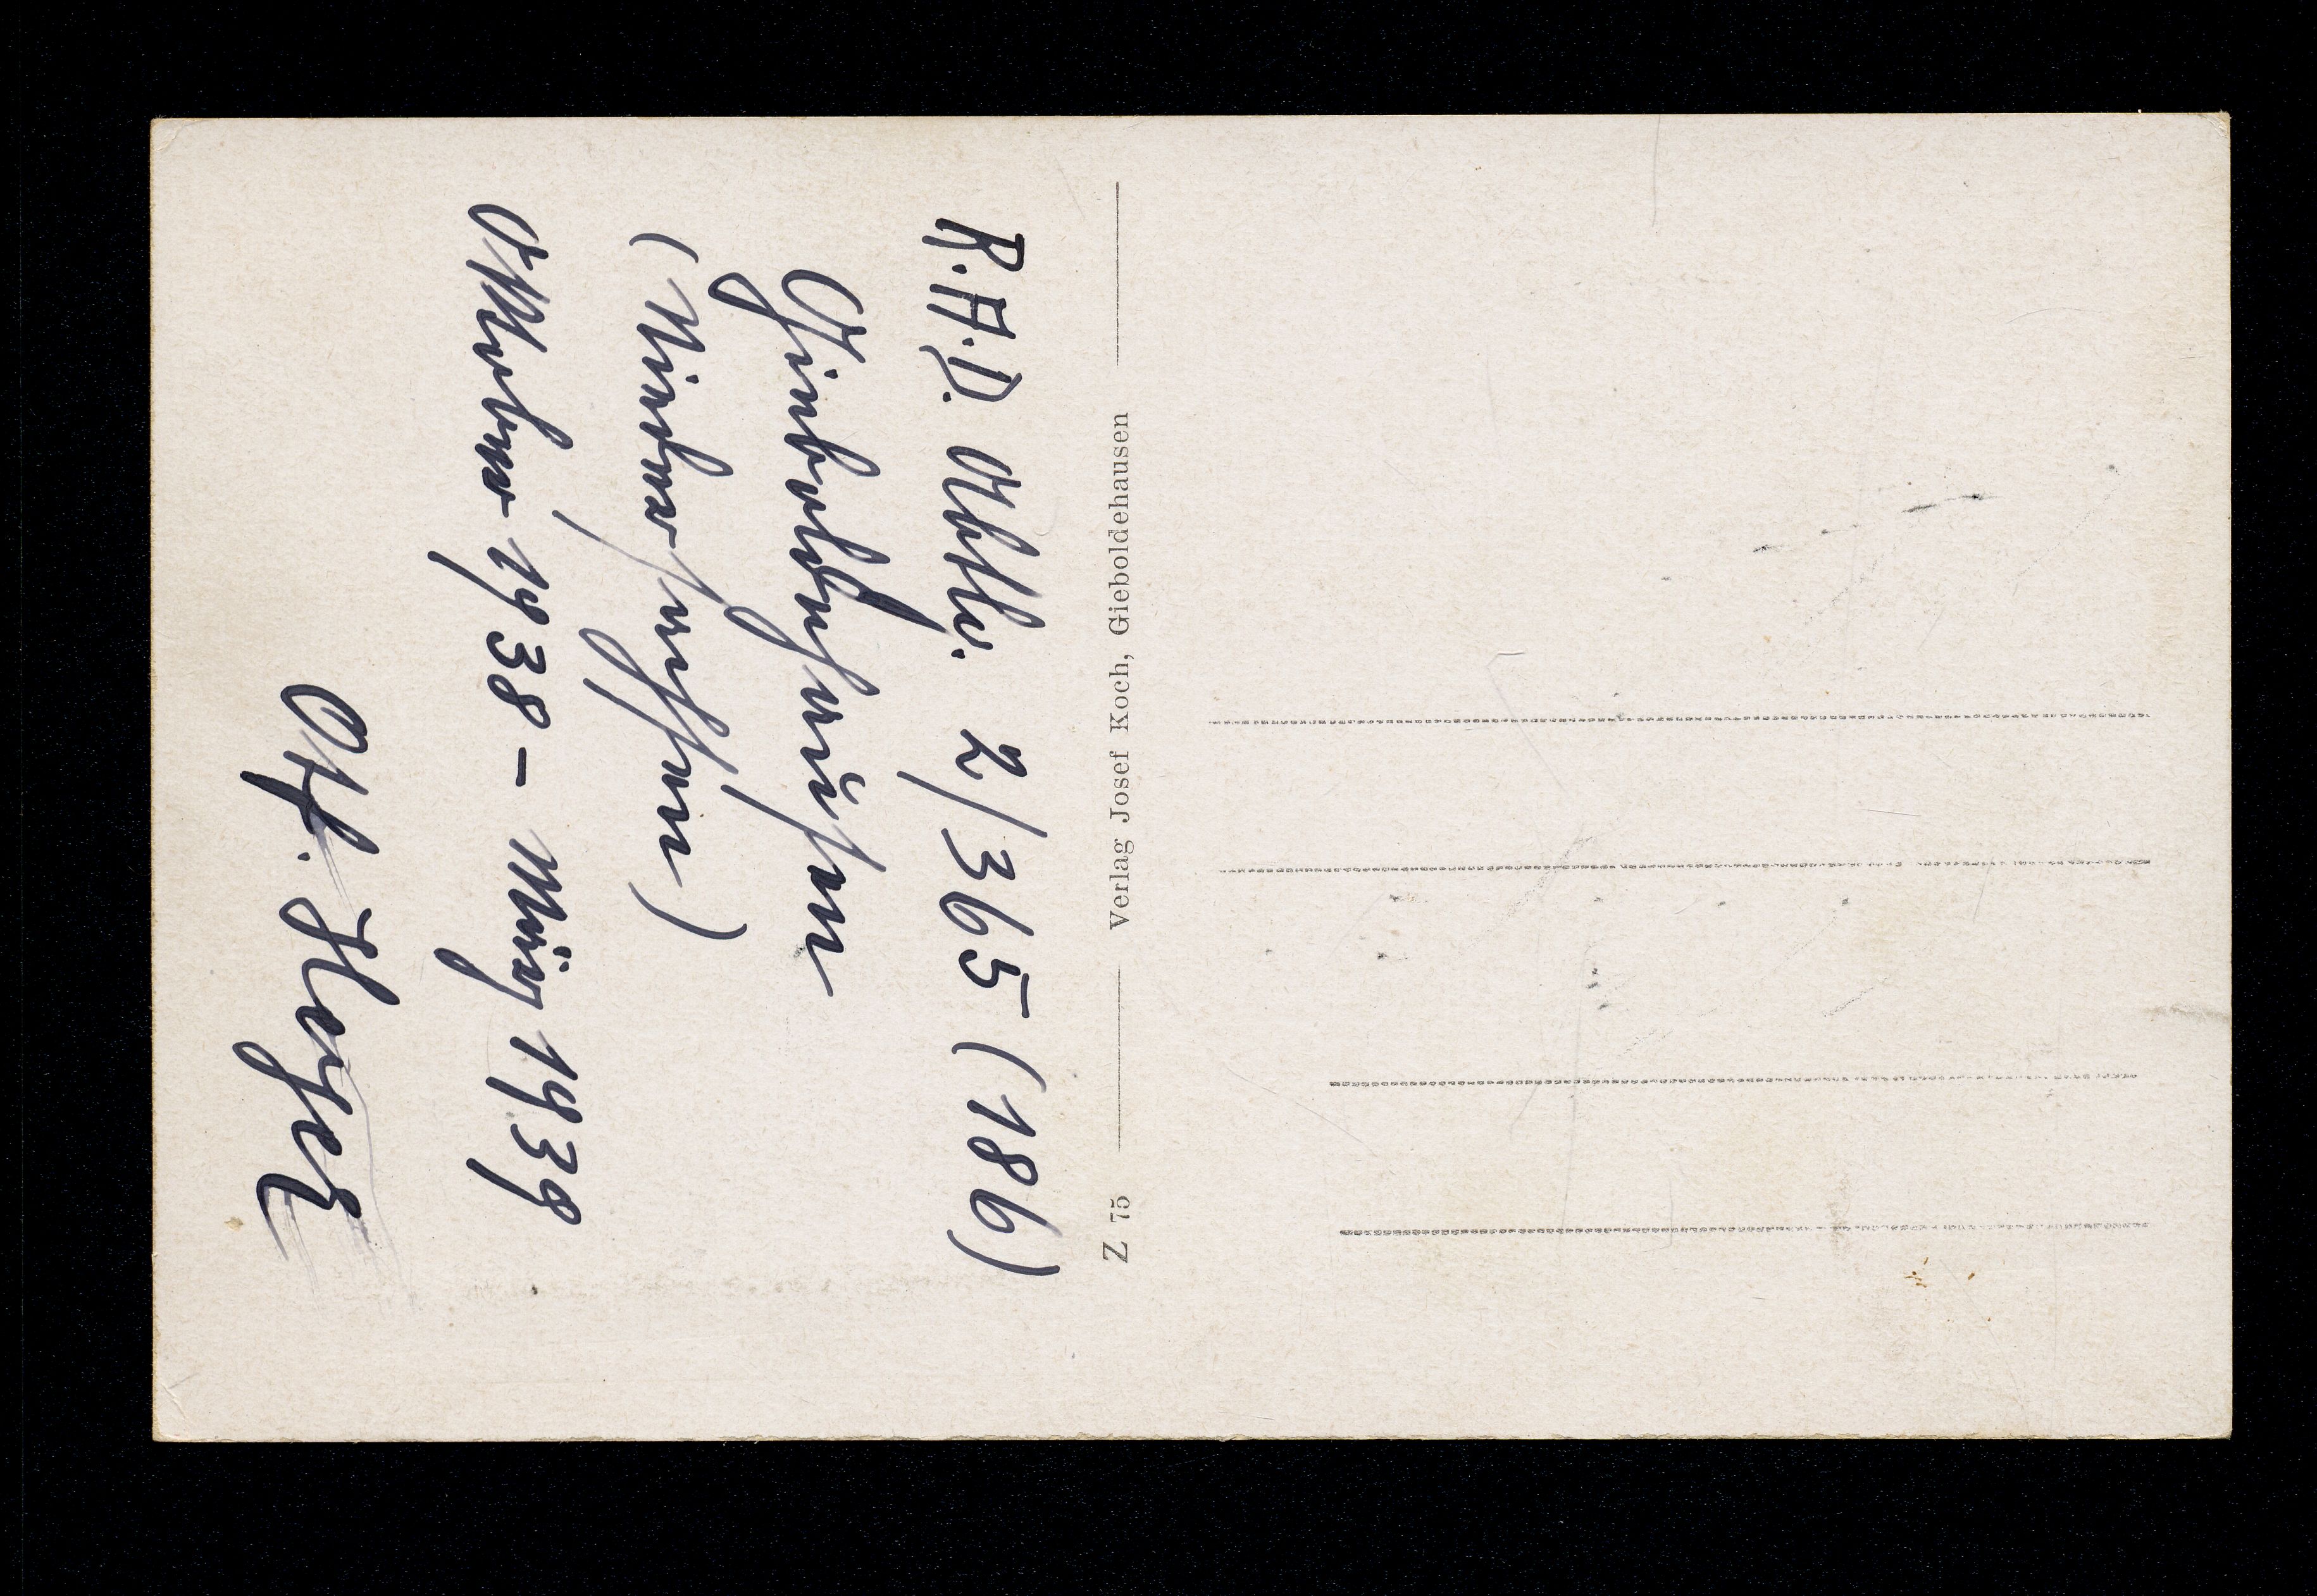 R.A.D. Abtlu. 2/365 (186)
Gieboldehausen
(Niedersachsen)
Oktober 1938 – März 1939
Verlag Josef Koch, Gieboldehausen
Z 75